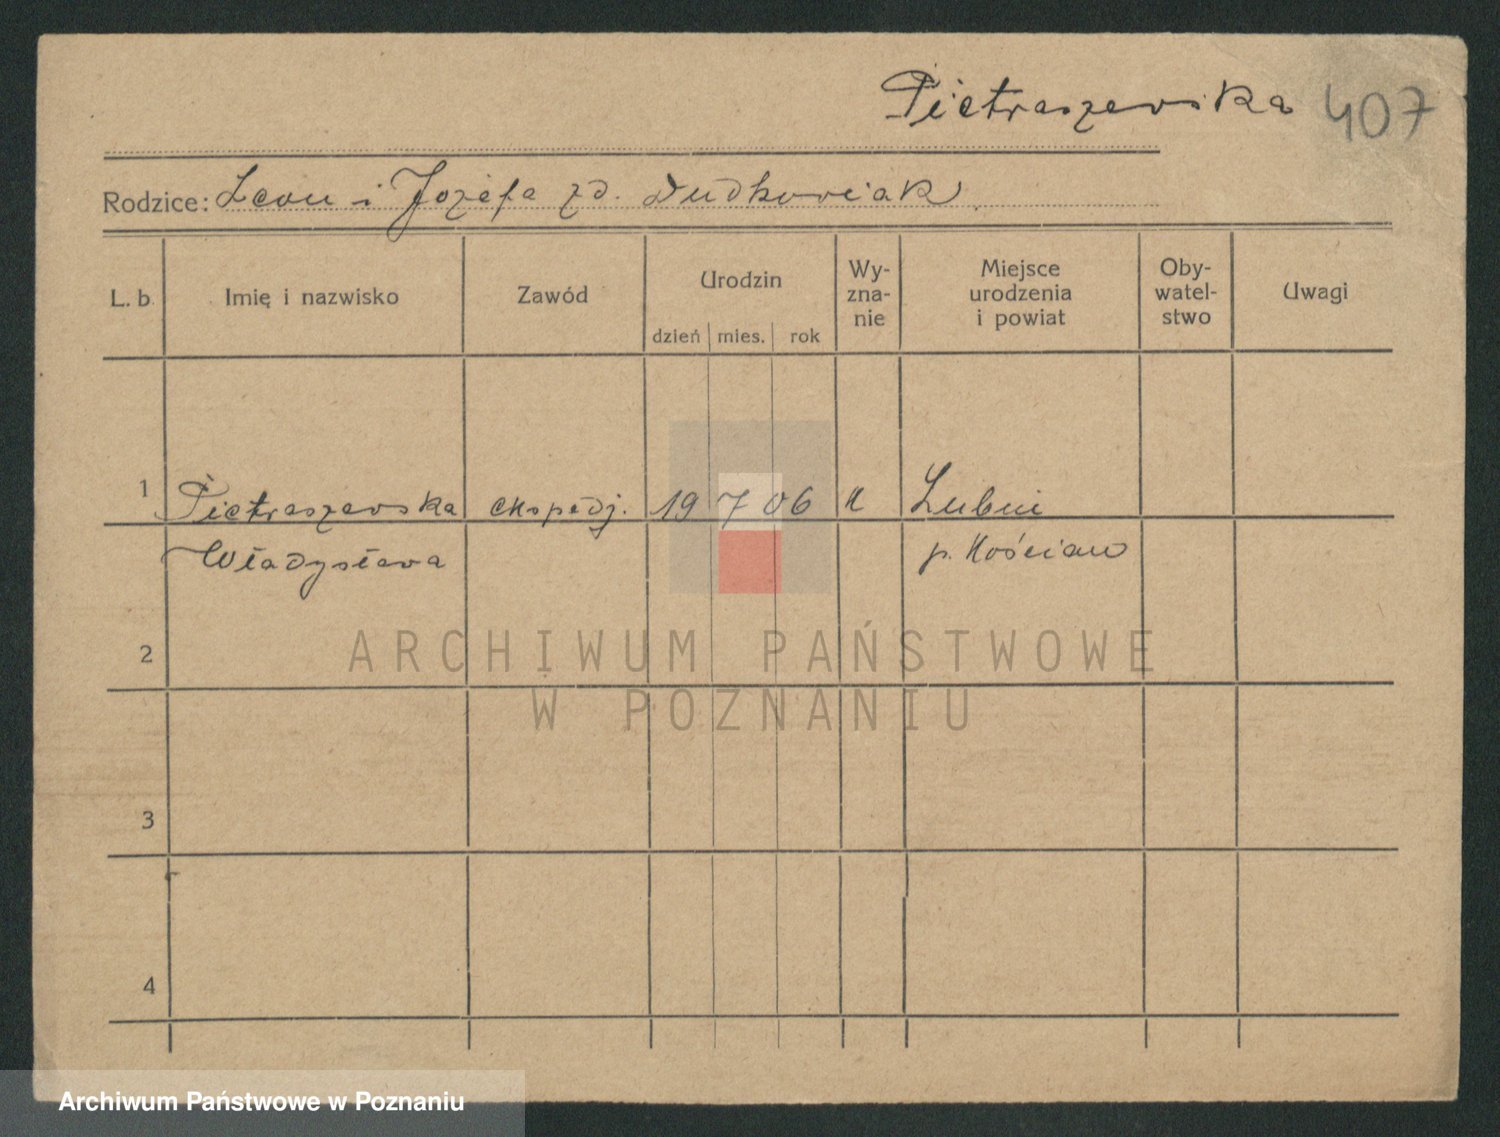 Pietraszewska 407
Rodzice: Leon i Józefa zd. Dudkowiak
L. b. Imię i nazwisko Zawód Urodzin dzień mies. rok Wy-zna-nie Miejsce urodzenia i powiat Oby-watel-stwo Uwagi
1 Pietraszewska ekspedj. 19 7 06 K Lubiń
Władysława p. Kościan
2
ARCHIWUM PAŃSTWOWE
W POZNANIU
3
4
Archiwum Państwowe w Poznaniu